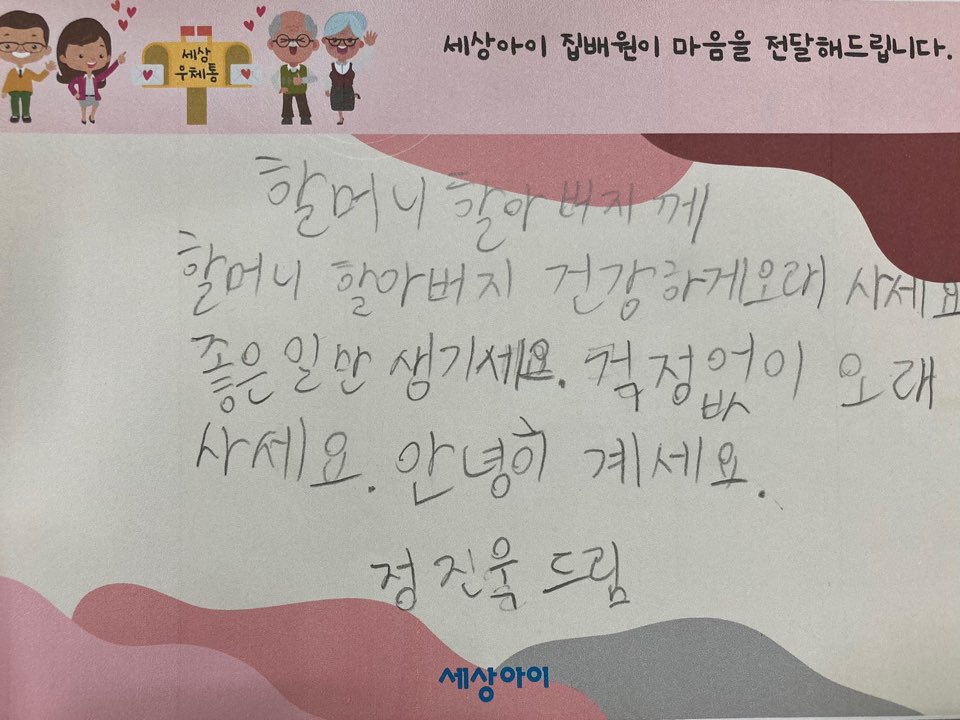 세상아이 집배원이 마음을 전달해드립니다.
세상
우체통
할머니 할아버지께
할머니 할아버지 건강하게오래 사세요
좋은일만 생기세요. 걱정없이 오래
사세요. 안녕히 계세요.
정진욱 드림
세상아이